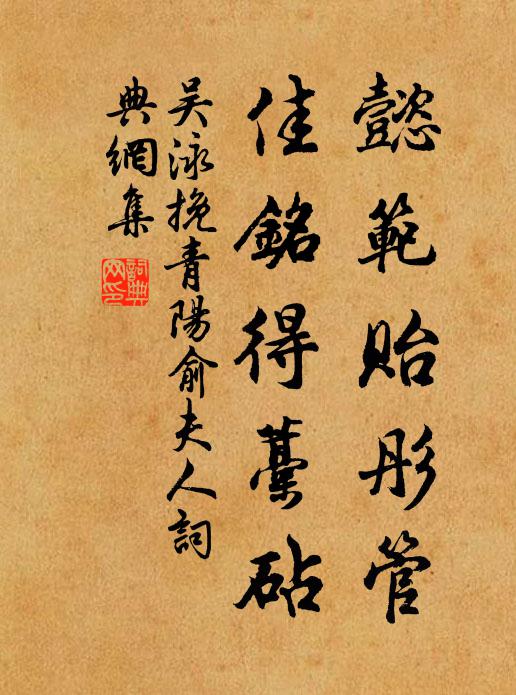 懿範貽彤管
佳銘得藁砧
吳泳挽青陽俞夫人詞
典網集
詞典
网印